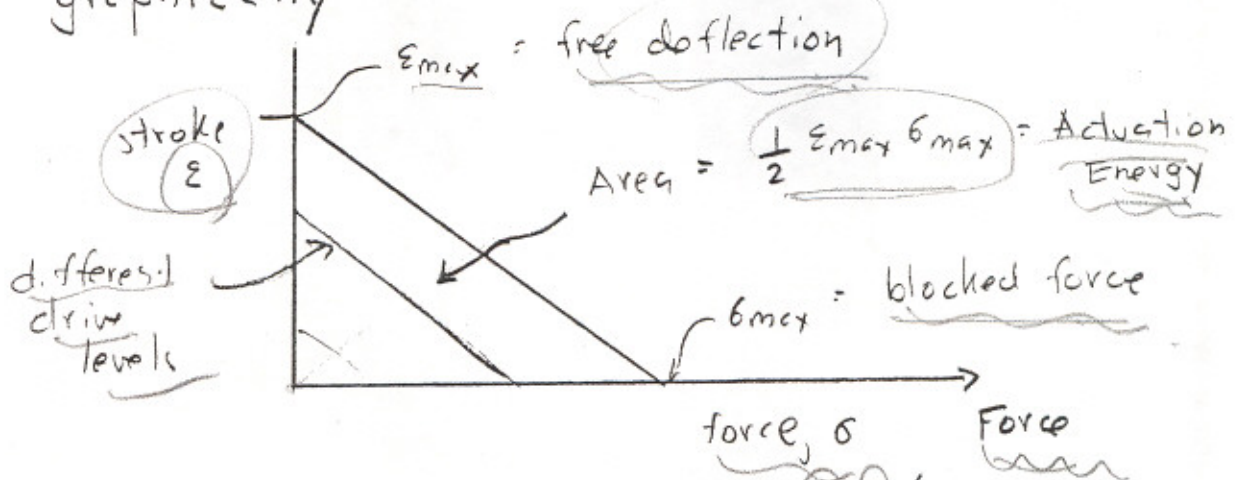 graphically
εmax = free deflection
stroke
ε
Area = 1/2 εmax σmax = Actuation
Energy
different
drive
levels
σmax = blocked force
force, σ Force